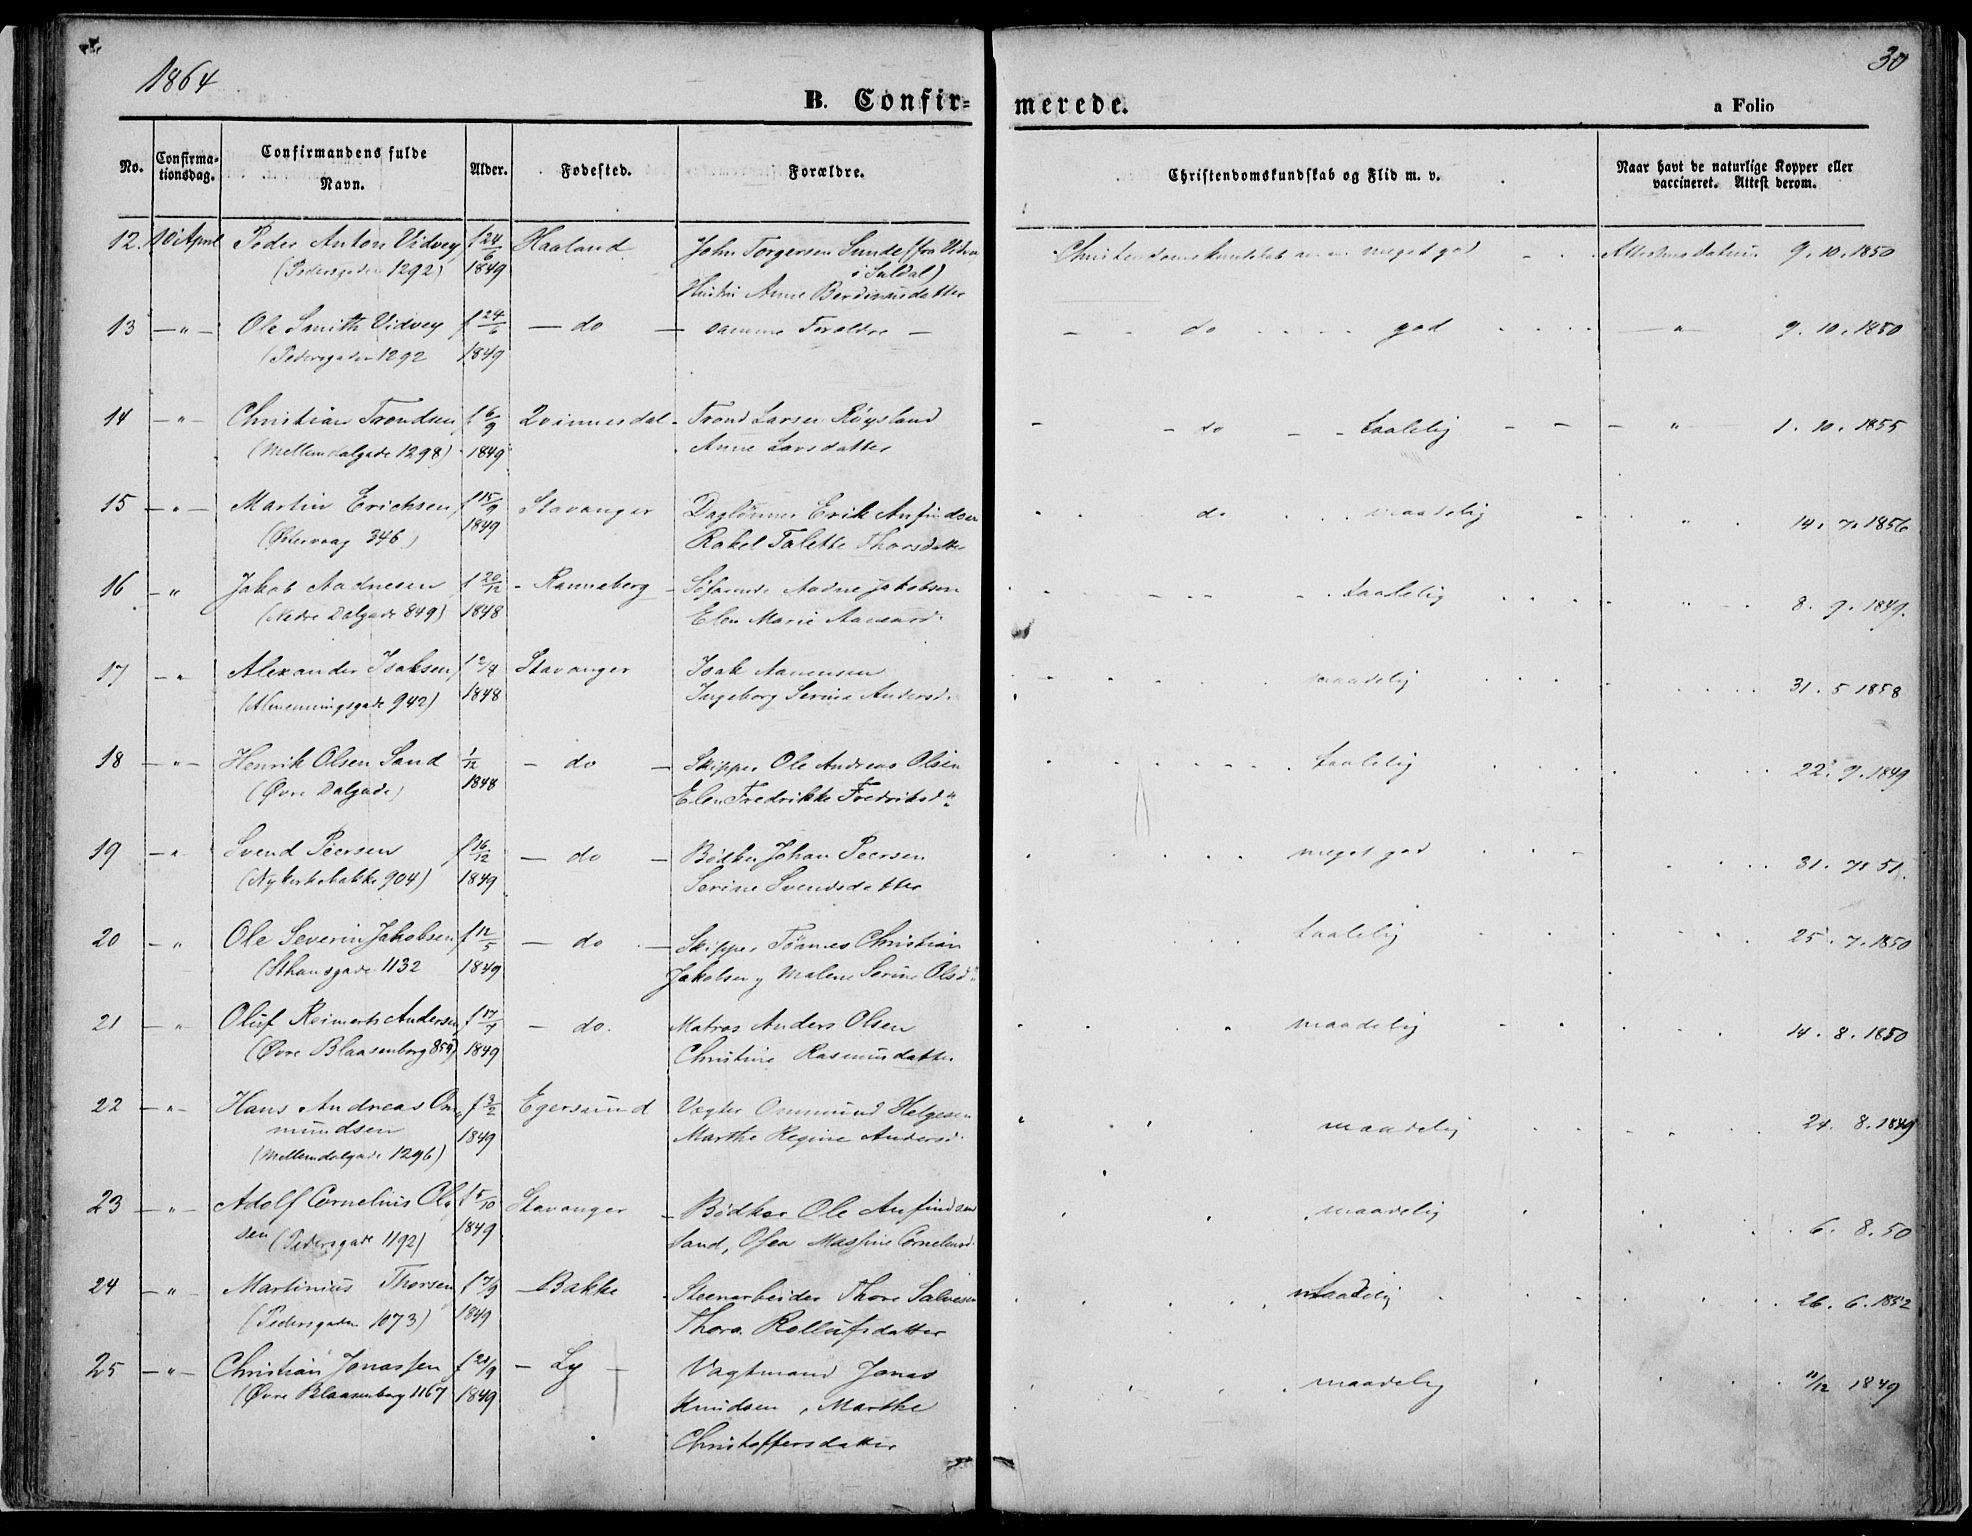 1864
30
B. Confir-
merede.
a Folio
No.
Confirma-
tionsdag.
Confirmandens fulde
Navn.
Alder.
Fødested.
Forældre.
Christendomskundskab og Flid m. v.
Naar havt de naturlige Kopper eller
vaccineret. Attest derom.
12. 10 April Peder Anton Vidvey f 24/6 Haaland John Torgersen Sunde (fra
(Pedersgaden 1292) 1849 i Suldal)
Hustru Anne
Christendomskundskab m.m. meget god Attestens datum 9. 10. 1850
13 — " — Ole Smith Vidvey f 24/6 — do — samme Forældre — do god " 9. 10. 1850
(Pedersgaden 1292 1849
14 — " — Christian Trondsen f 6/9 Qvinnesdal Trond Larsen Røysland - do - - taalelig " 1. 10. 1855
(Mellemdalgade 1298) 1849 Anne Larsdatter
15 — " — Martin Erichsen f 15/9 Stavanger Daglønner Erik Anfindsen do maadelig " 14. 7. 1856
(Østervaag 346.) 1849 Rakel Talette Thorsdatter
16 — " Jakob Aadnesen f 20/12 - Ranneberg - Søfarende Aadne Jakobsen taalelig " 8. 9. 1849.
(Nedre Dalgade 849) 1848 Elen Marie
17 — " Alexander Isaksen Stavanger Isak Aanensen maadelig 31. 5 1858
(Almenningsgade 942) 1848 Ingeborg Serine Andersd.
18 — " — Henrik Olsen Sand 1/12 — do — Skipper Ole Andreas Olsen taalelig 22. 9. 1849
(Øvre Dalgade) 1848 Elen Fredrikke Fredriksd"
19 — " Svend Peersen f 16/12 — do — Bødker Johan Peersen meget god 31. 7. 51.
(Nykirkebakke 904) 1849 Serine Svendsdatter
20 — " Ole Severin Jakobsen f 12/5 — do — Skipper Tönnes Christian taalelig 25. 7. 1850
(Sthansgade 1132 1849 Jakobsen og Malene Serine Olsd"
21 — " Oluf Reimerts Andersen f 17/7 — do. Matros Anders Olsen maadelig 14. 8. 1850
(Øvre Blaasenborg 854) 1849 Christine Rasmusdatter
22 — " — Hans Andreas Om- f 3/2 Egersund Vægter Ommund Helgesen maadelig 24. 8. 1849
mundsen 1849 Marthe Regine Andersd.
(Mellemdalgade 1296)
23 — " — Adolf Cornelius Ol- f 5/10 Stavanger - Bødker Ole Anfindsen maadelig 6. 8. 50
sen (Pedersgade 1192) 1849 Sand, Osea Massine Corneliusd.
24 — " Martinius Thorsen f 7/9 — Bakke - Steenarbeider Thore Salvesen maadelig 26. 6. 1852
(Pedersgaden 1073) 1849 Thora Rollufsdatter
25 — " — Christian Jonassen f 21/9 — Ly — Vagtmand Jonas maadelig 11/12 1849
(Øvre Blaasenborg 1167 1849 Knudsen, Marthe
Christoffersdatter